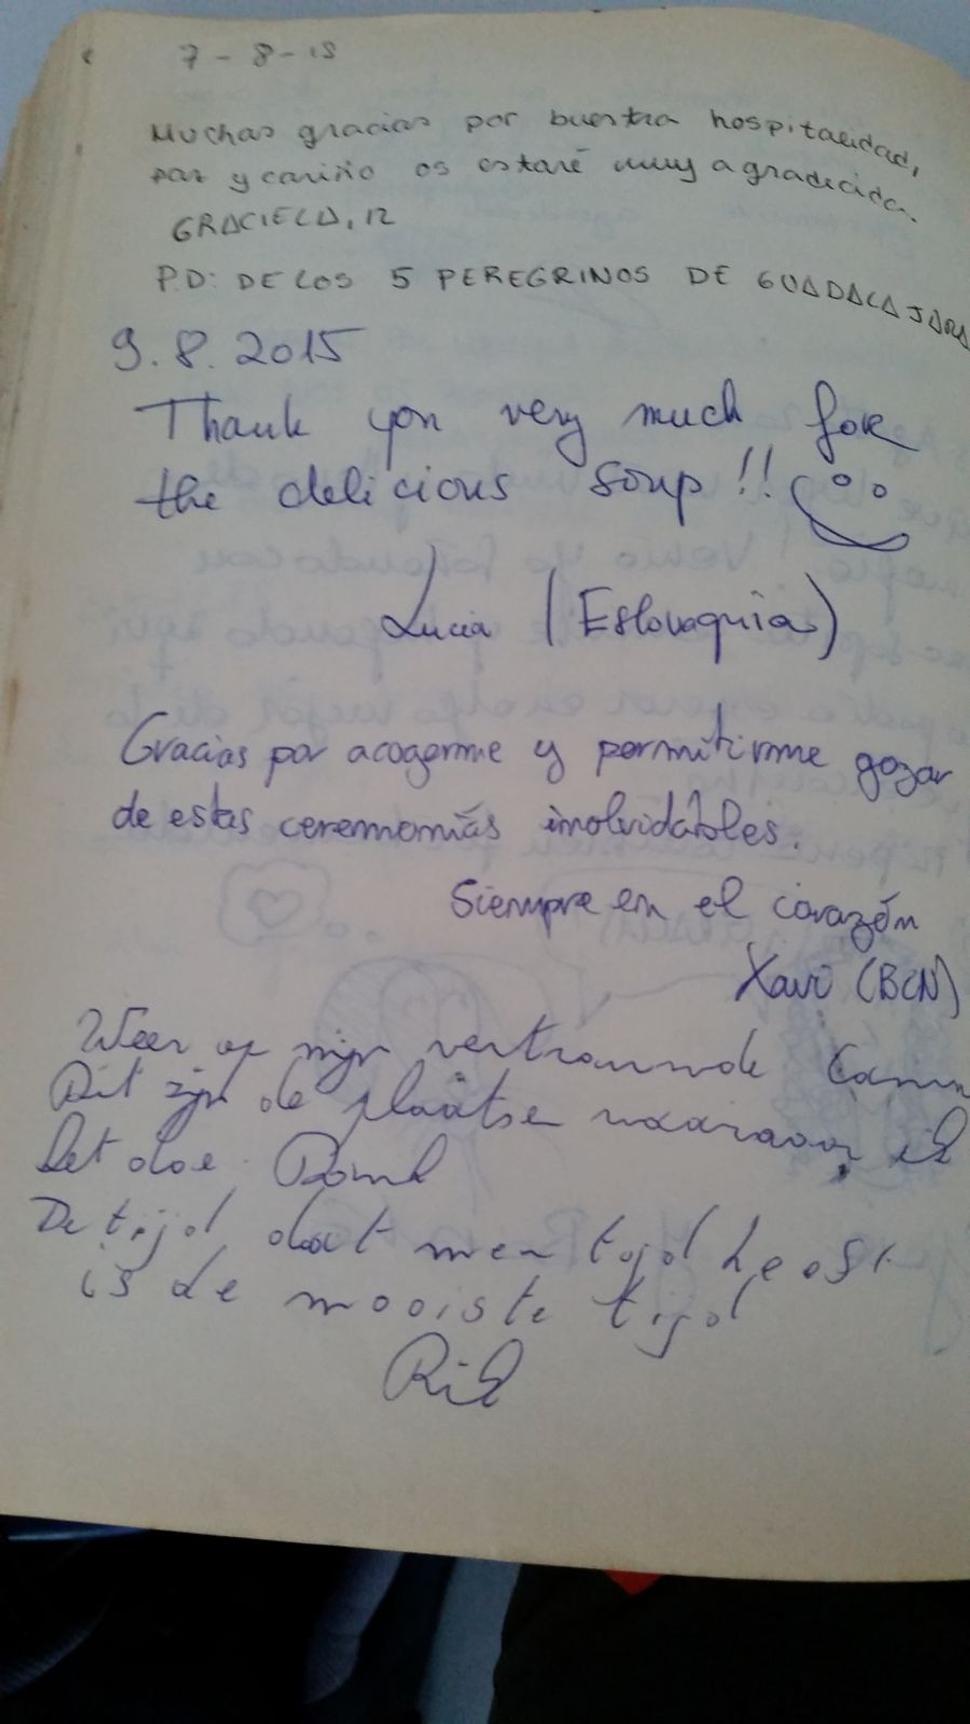 7-8-15
Muchas gracias por buestra hospitalidad,
paz y cariño os estaré muy agradecida.
GRACIELA, 12
P.D: DE LOS 5 PEREGRINOS DE GUADALAJARA
9.8.2015
Thank you very much for
the delicious soup!!
Lucia (Eslovaquia)
Gracias por acogerme y permitirme gozar
de estas ceremonias inolvidables.
Siempre en el corazón
Xavi (BCN)
Weer op mijn vertrouwde
Dit zijn de plaatse waarvoor ik
het doe.
De tijd dat men tijd heeft
is de mooiste tijd
Rik